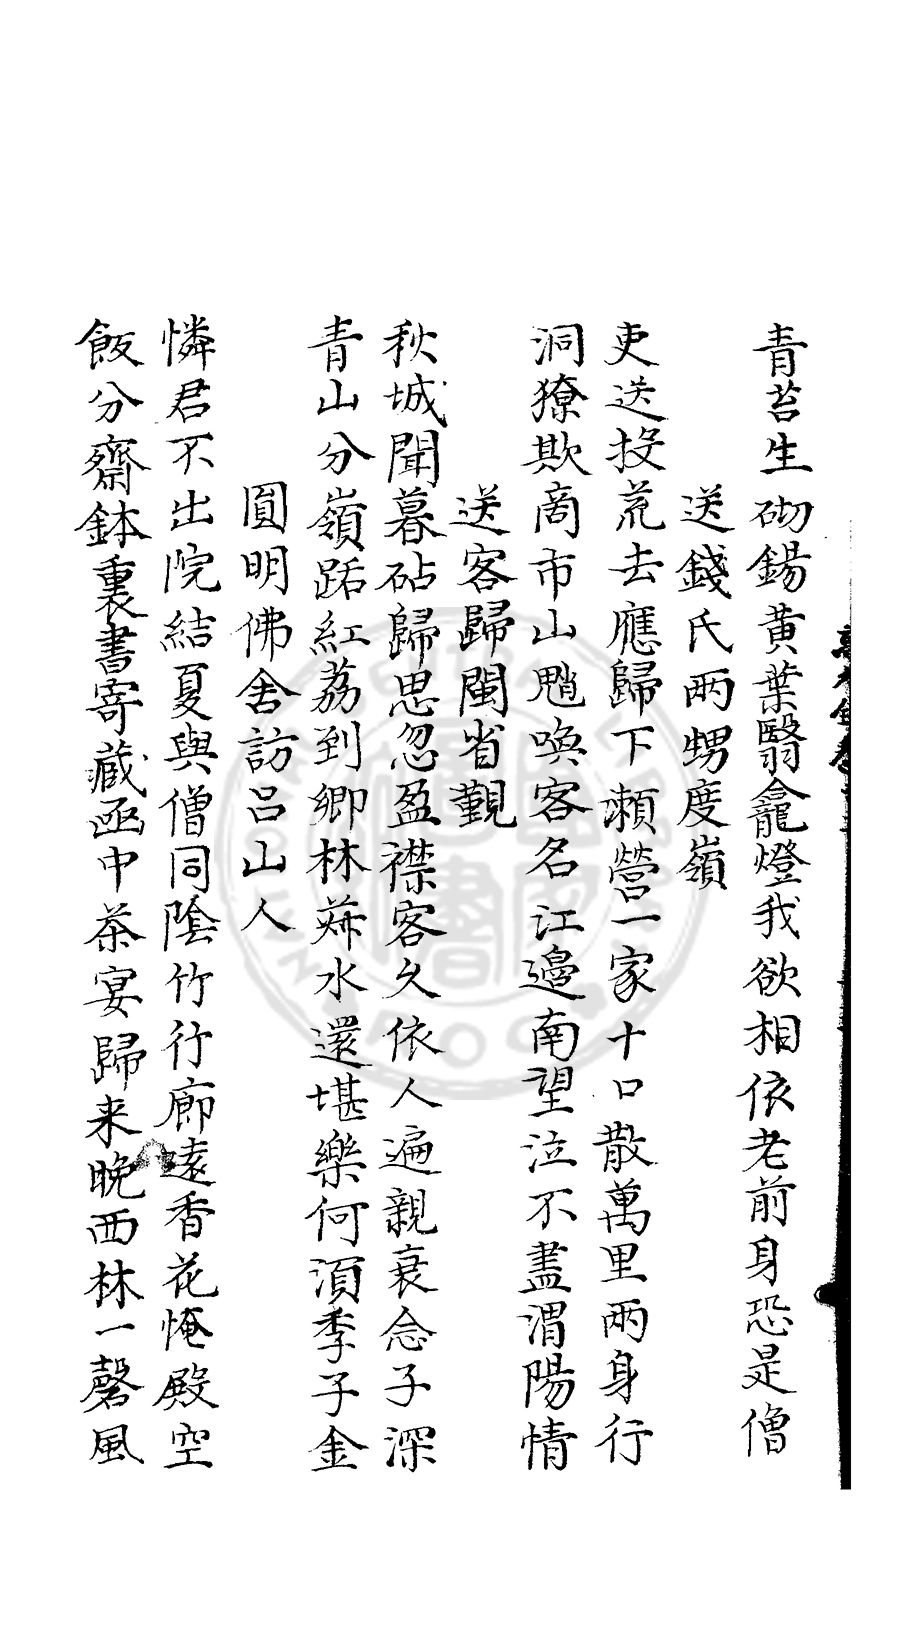 青苔生砌鍚黄葉翳龕燈我欲相依老前身恐是僧
送錢氏两甥度嶺
吏送投荒去應歸下瀬營一家十口散萬里两身行
洞獠欺啇市山魈唤客名江邉南望泣不盡渭陽情
送客歸閩省覲
秋城聞暮砧歸思忽盈襟客久依人遍親衰念子深
青山分嶺路紅荔到鄉林菽水還堪樂何湏季子金
圓明佛舍訪吕山人
憐君不出院結夏與僧同陰竹行廊遠香花惓殿空
飯分齋鉢裏書寄藏函中茶宴歸来晚西林一磬風